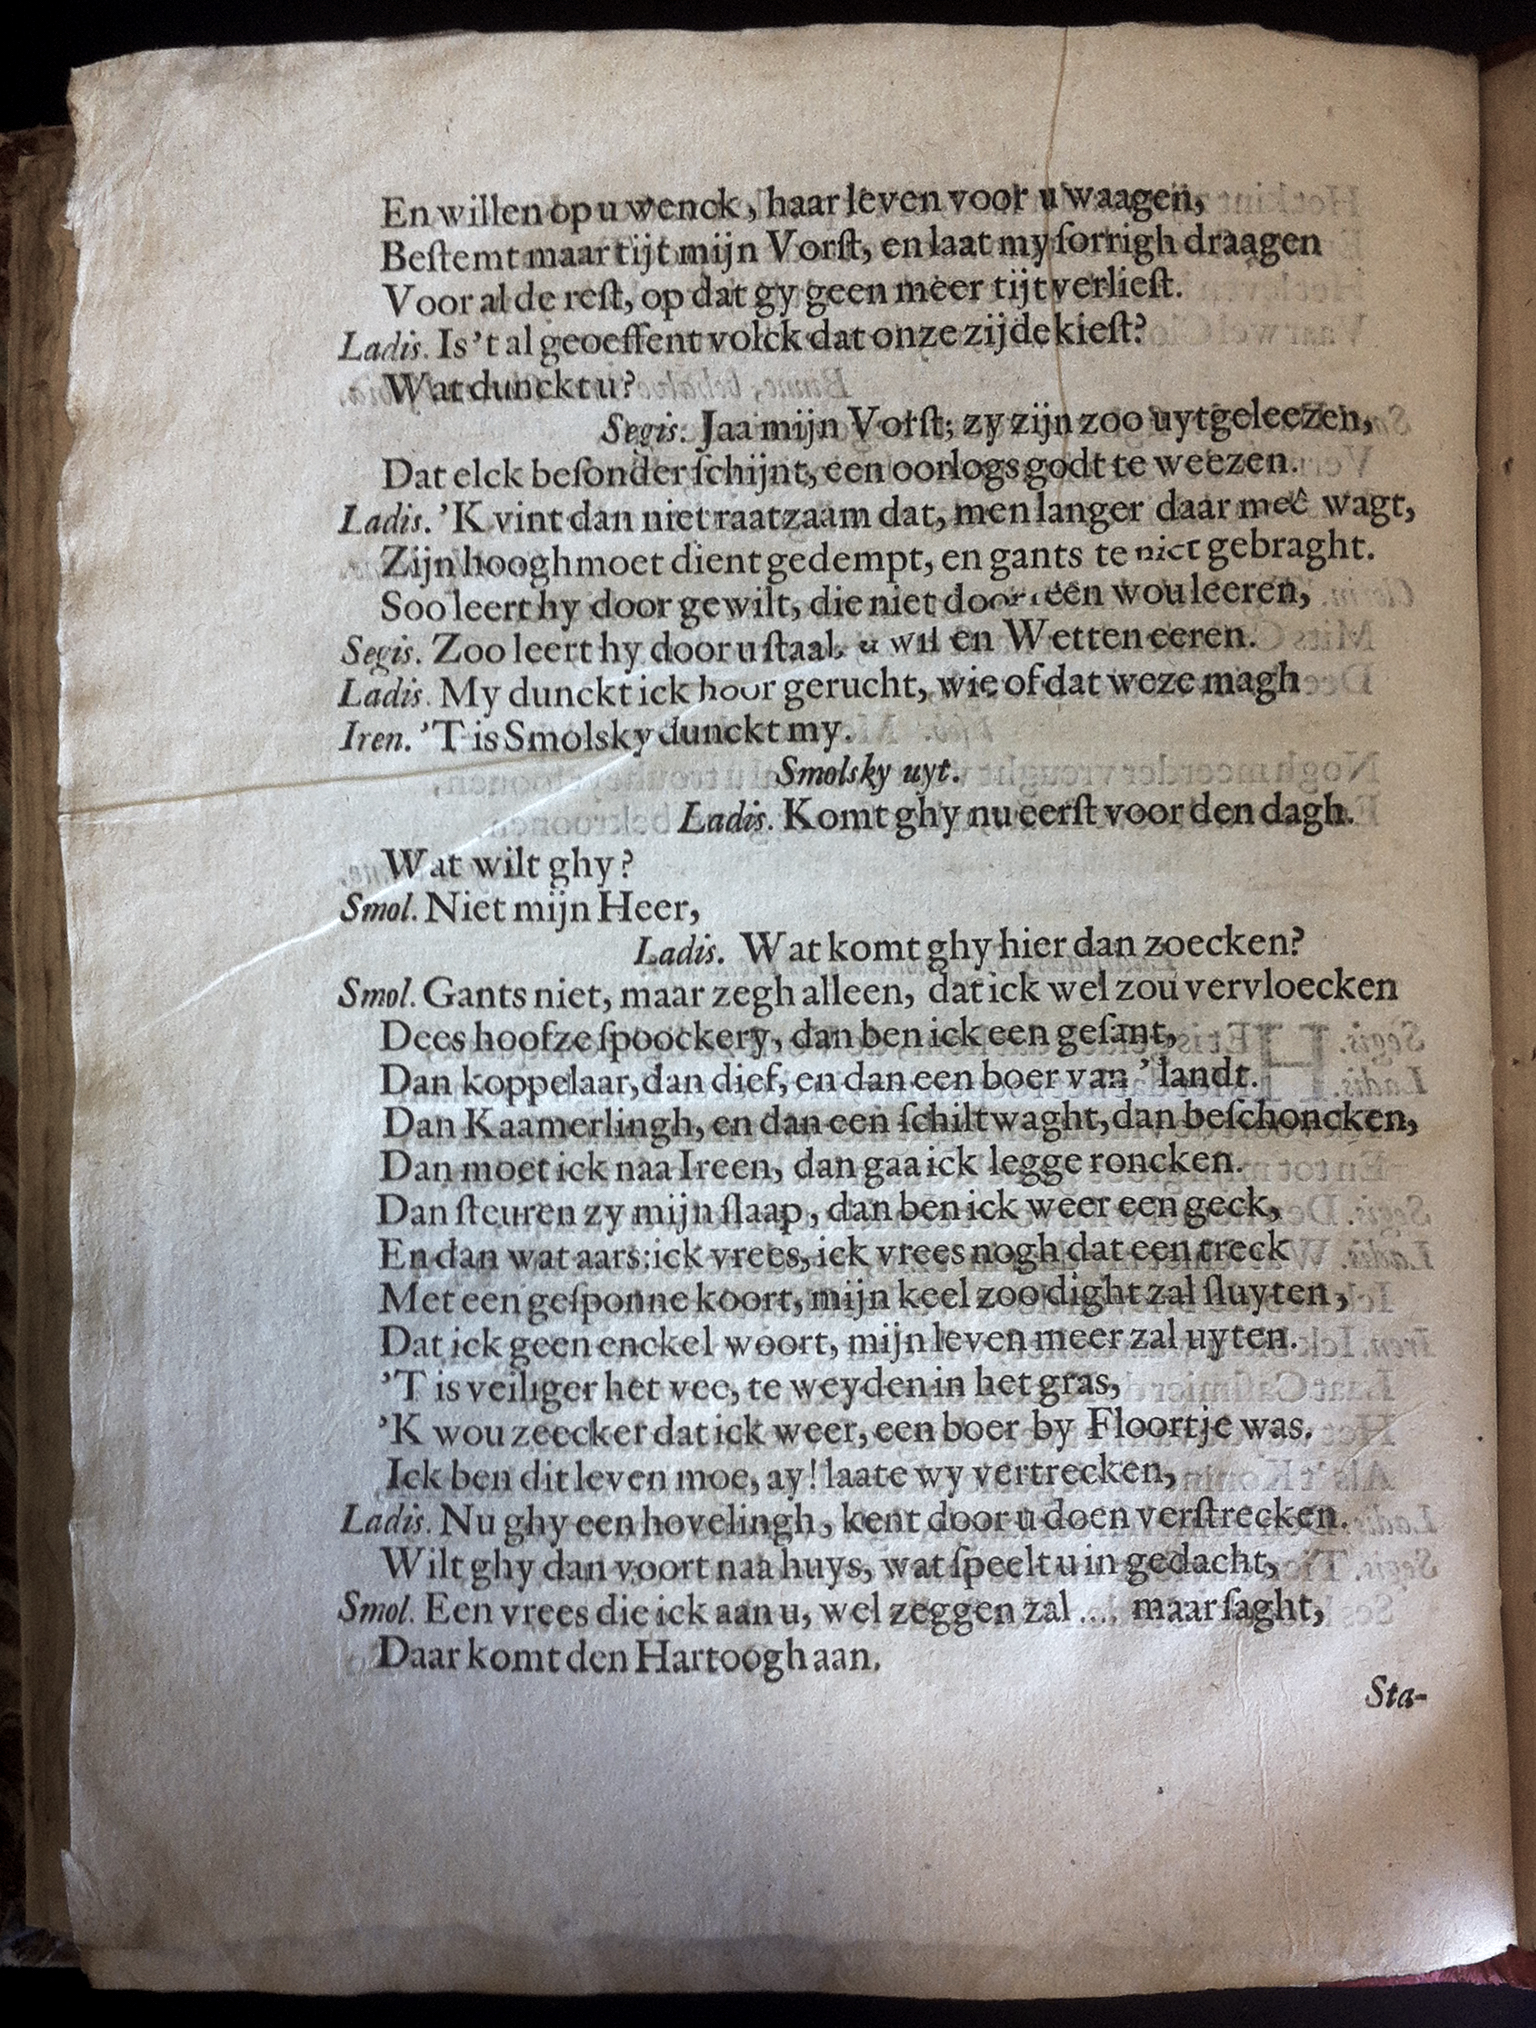 En willen op u wenck, haar leven voor u waagen,
Beſtemt maar tijt mijn Vorſt, en laat my ſorrigh draagen
Voor al de reſt, op dat gy geen meer tijt verlieſt.
Ladis. Is 't al geoeffent volck dat onze zijde kieſt?
Wat dunckt u?
Segis. Jaa mijn Vorſt; zy zijn zoo uytgeleezen,
Dat elck beſonder ſchijnt, een oorlogs godt te weezen.
Ladis. 'K vint dan niet raatzaam dat, men langer daar meê wagt,
Zijn hooghmoet dient gedempt, en gants te niet gebraght.
Soo leert hy door gewilt, die niet door een wou leeren,
Segis. Zoo leert hy door u ſtaal, u wil en Wetten eeren.
Ladis. My dunckt ick hoor gerucht, wie of dat weze magh
Iren. 'T is Smolsky dunckt my.
Smolsky uyt.
Ladis. Komt ghy nu eerſt voor den dagh.
Wat wilt ghy?
Smol. Niet mijn Heer,
Ladis. Wat komt ghy hier dan zoecken?
Smol. Gants niet, maar zegh alleen, dat ick wel zou vervloecken
Dees hoofze ſpoockery, dan ben ick een geſant,
Dan koppelaar, dan dief, en dan een boer van 't landt.
Dan Kaamerlingh, en dan een ſchiltwaght, dan beſchoncken,
Dan moet ick naa Ireen, dan gaa ick legge roncken.
Dan ſteuren zy mijn ſlaap, dan ben ick weer een geck,
En dan wat aars; ick vrees, ick vrees nogh dat een treck
Met een geſponne koort, mijn keel zoo dight zal ſluyten,
Dat ick geen enckel woort, mijn leven meer zal uyten.
'T is veiliger het vee, te weyden in het gras,
'K wou zeecker dat ick weer, een boer by Floortje was.
Ick ben dit leven moe, ay! laate wy vertrecken,
Ladis. Nu ghy een hovelingh, kent door u doen verſtrecken.
Wilt ghy dan voort naa huys, wat ſpeelt u in gedacht,
Smol. Een vrees die ick aan u, wel zeggen zal .... maar ſaght,
Daar komt den Hartoogh aan.
Sta-